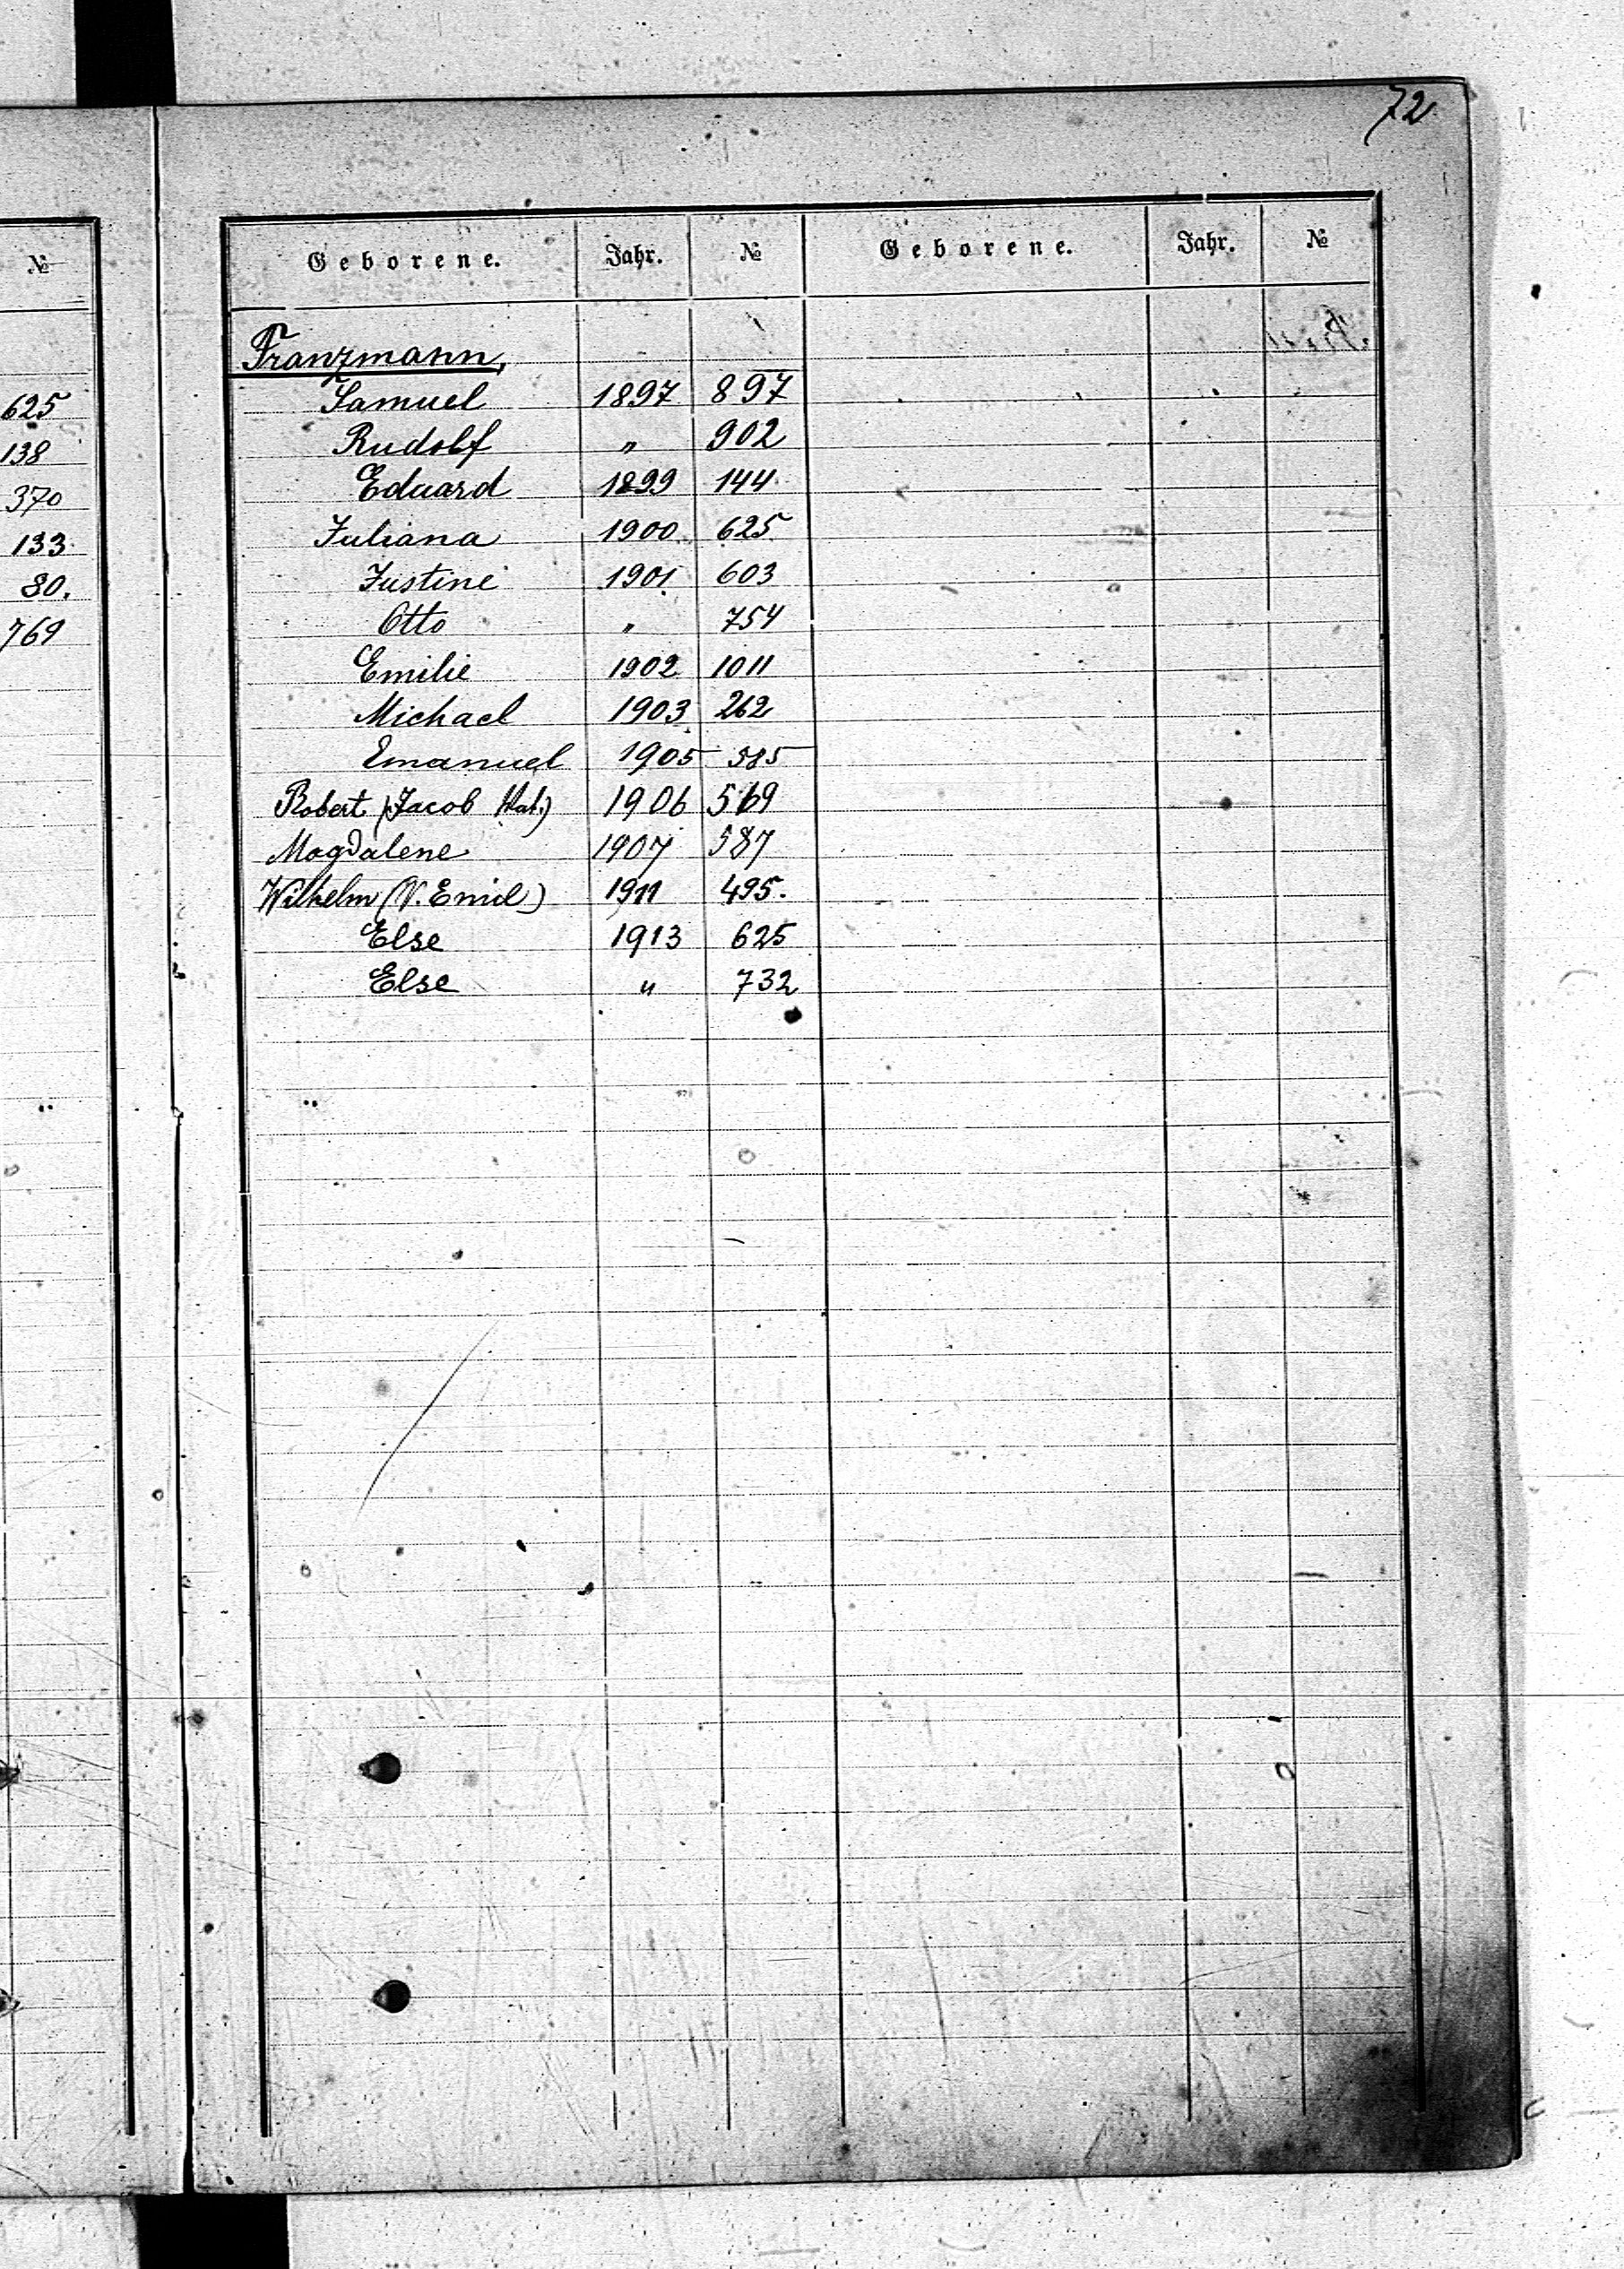 72
№
625
138
370
133
80.
769
Geborene. Jahr. № Geborene. Jahr. №
Franzmann,
Samuel 1897 897
Rudolf " 902
Eduard 1899 144
Juliana 1900 625
Justine 1901 603
Otto " 754
Emilie 1902 1011
Michael 1903 262
Emanuel 1905 385
Robert (Jacob 1906 569
Magdalene 1907 587
Wilhelm (V. Emil) 1911 495.
Else 1913 625
Else " 732